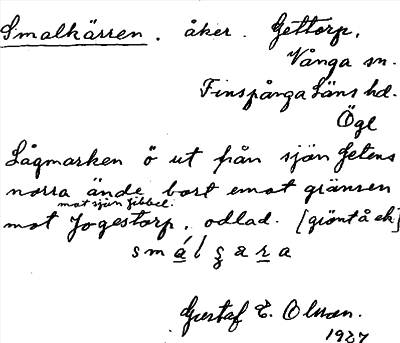 Smalkärren. åker. Gettorp.
Vånga sn.
Finspånga Läns hd.
Ögl
Lågmarken ö ut från sjön Getens
norra ände bort emot gränsen
mot sjön Gibbel.
mot Jogestorp. odlad. [grönt å ek]
smálgara
Gustaf E. Olsson.
1927